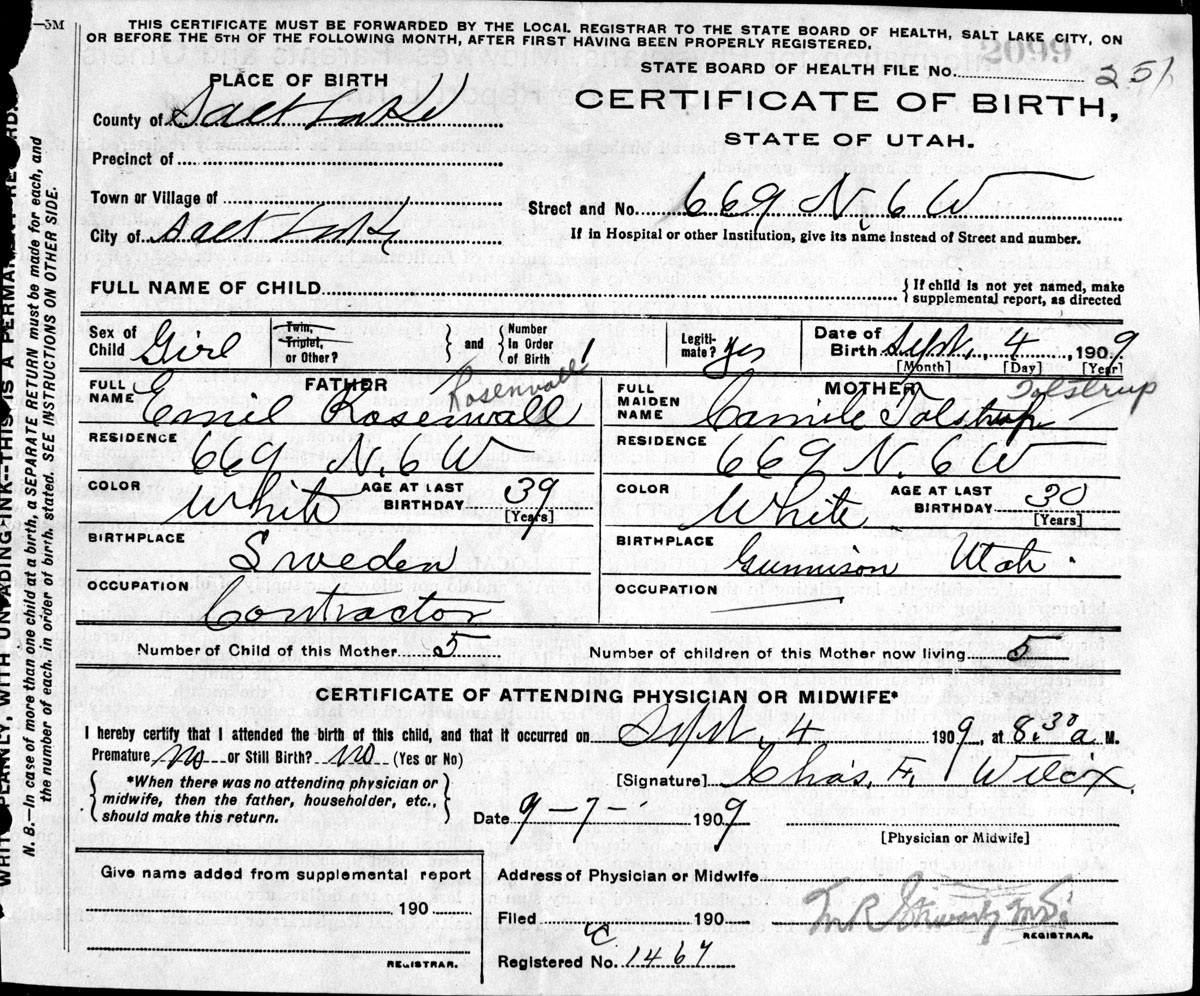 —3M
THIS CERTIFICATE MUST BE FORWARDED BY THE LOCAL REGISTRAR TO THE STATE BOARD OF HEALTH, SALT LAKE CITY, ON
OR BEFORE THE 5TH OF THE FOLLOWING MONTH, AFTER FIRST HAVING BEEN PROPERLY REGISTERED.
PLACE OF BIRTH
STATE BOARD OF HEALTH FILE No. 251
CERTIFICATE OF BIRTH,
STATE OF UTAH.
County of Salt Lake
Precinct of
Town or Village of
Street and No. 669 N. 6 W
City of Salt Lake
If in Hospital or other Institution, give its name instead of Street and number.
FULL NAME OF CHILD
{ If child is not yet named, make
supplemental report, as directed
Sex of Child Girl
Twin, Triplet, or Other?
and
Number In Order of Birth 1
Legitimate? Yes
Date of Birth Sept. 4, 1909
[Month] [Day] [Year]
FATHER Rosenvall
FULL NAME Emil Rosenvall
MOTHER Tolstrup
FULL MAIDEN NAME Camile Tolstrup
RESIDENCE 669 N. 6 W
RESIDENCE 669 N. 6 W
COLOR White
AGE AT LAST BIRTHDAY 39 [Years]
COLOR White
AGE AT LAST BIRTHDAY 30 [Years]
BIRTHPLACE Sweden
BIRTHPLACE Gunnison Utah.
OCCUPATION Contractor
OCCUPATION
Number of Child of this Mother 5
Number of children of this Mother now living 5
CERTIFICATE OF ATTENDING PHYSICIAN OR MIDWIFE*
I hereby certify that I attended the birth of this child, and that it occurred on Sept. 4 1909, at 8.30 a M.
Premature no or Still Birth? no (Yes or No)
*When there was no attending physician or
midwife, then the father, householder, etc.,
should make this return.
[Signature] Chas. F. Wilcox
Date 9-7- 1909
[Physician or Midwife]
Give name added from supplemental report
190
REGISTRAR.
Address of Physician or Midwife
Filed 190
REGISTRAR.
Registered No. 1467
N. B.—In case of more than one child at a birth, a SEPARATE RETURN must be made for each, and
the number of each, in order of birth, stated. SEE INSTRUCTIONS ON OTHER SIDE.